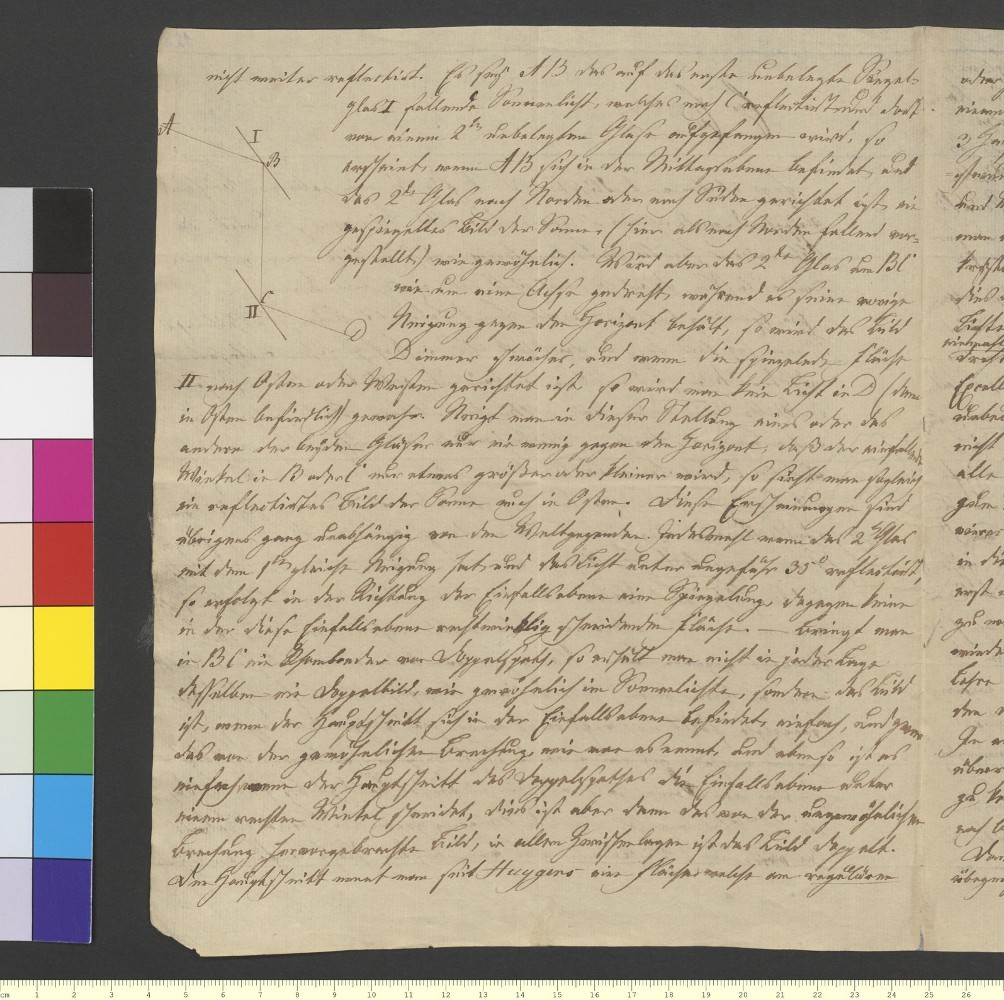 nicht weiter reflectirt. Es sey AB das auf das erste unbelegte Spiegel-
glas I fallende Sonnenlicht, welches nach C reflectirt und dort
von einem 2ten unbelegten Glase aufgefangen wird, so
erscheint, wenn AB sich in der Mittagsebene befindet, und
das 2te Glas nach Norden oder nach Süden gerichtet ist, ein
gespiegeltes Bild der Sonne, (hier als nach Norden fallend vor-
gestellt) wie gewöhnlich. Wird aber das 2te Glas um BC
wie um eine Achse gedreht, während es seine vorige
Neigung gegen den Horizont behält, so wird das Bild
D immer schwächer, und wenn die spiegelnde Fläche
II nach Osten oder Westen gerichtet ist, so wird man kein Licht in D (dann
in Osten befindlich) gewahr. Neigt man in dieser Stellung eines oder das
andere der beyden Gläser nur ein wenig gegen den Horizont, daß der einfallende
Winkel in B oder C nur etwas größer oder kleiner wird, so sieht man sogleich
ein reflectirtes Bild der Sonne auch in Osten. Diese Erscheinungen sind
übrigens ganz unabhängig von den Weltgegenden. Jedesmahl wenn das 2te Glas
mit dem 1ten gleiche Neigung hat und das Licht unter ungefähr 35° reflectirt,
so erfolgt in der Richtung der Einfallsebene eine Spiegelung, dagegen keine
in der diese Einfallsebene rechtwinklig schneidenden Fläche. — Bringt man
in BC ein Rhomboeder von Doppelspath, so erhält man nicht in jeder Lage
desselben ein Doppelbild, wie gewöhnlich im Sonnenlichte, sondern das Bild
ist, wenn der Hauptschnitt sich in der Einfallsebene befindet, einfach, und zwar
das von der gewöhnlichen Brechung, wie man es nennt, und ebenso ist es
einfach wenn der Hauptschnitt des Doppelspathes die Einfallsebene unter
einem rechten Winkel schneidet, dies ist aber dann das von der ungewöhnlichen
Brechung hervorgebrachte Bild, in allen Zwischenlagen ist das Bild doppelt.
Den Hauptschnitt nennt man seit Huygens eine Fläche welche am regulären
A
I
B
C
II